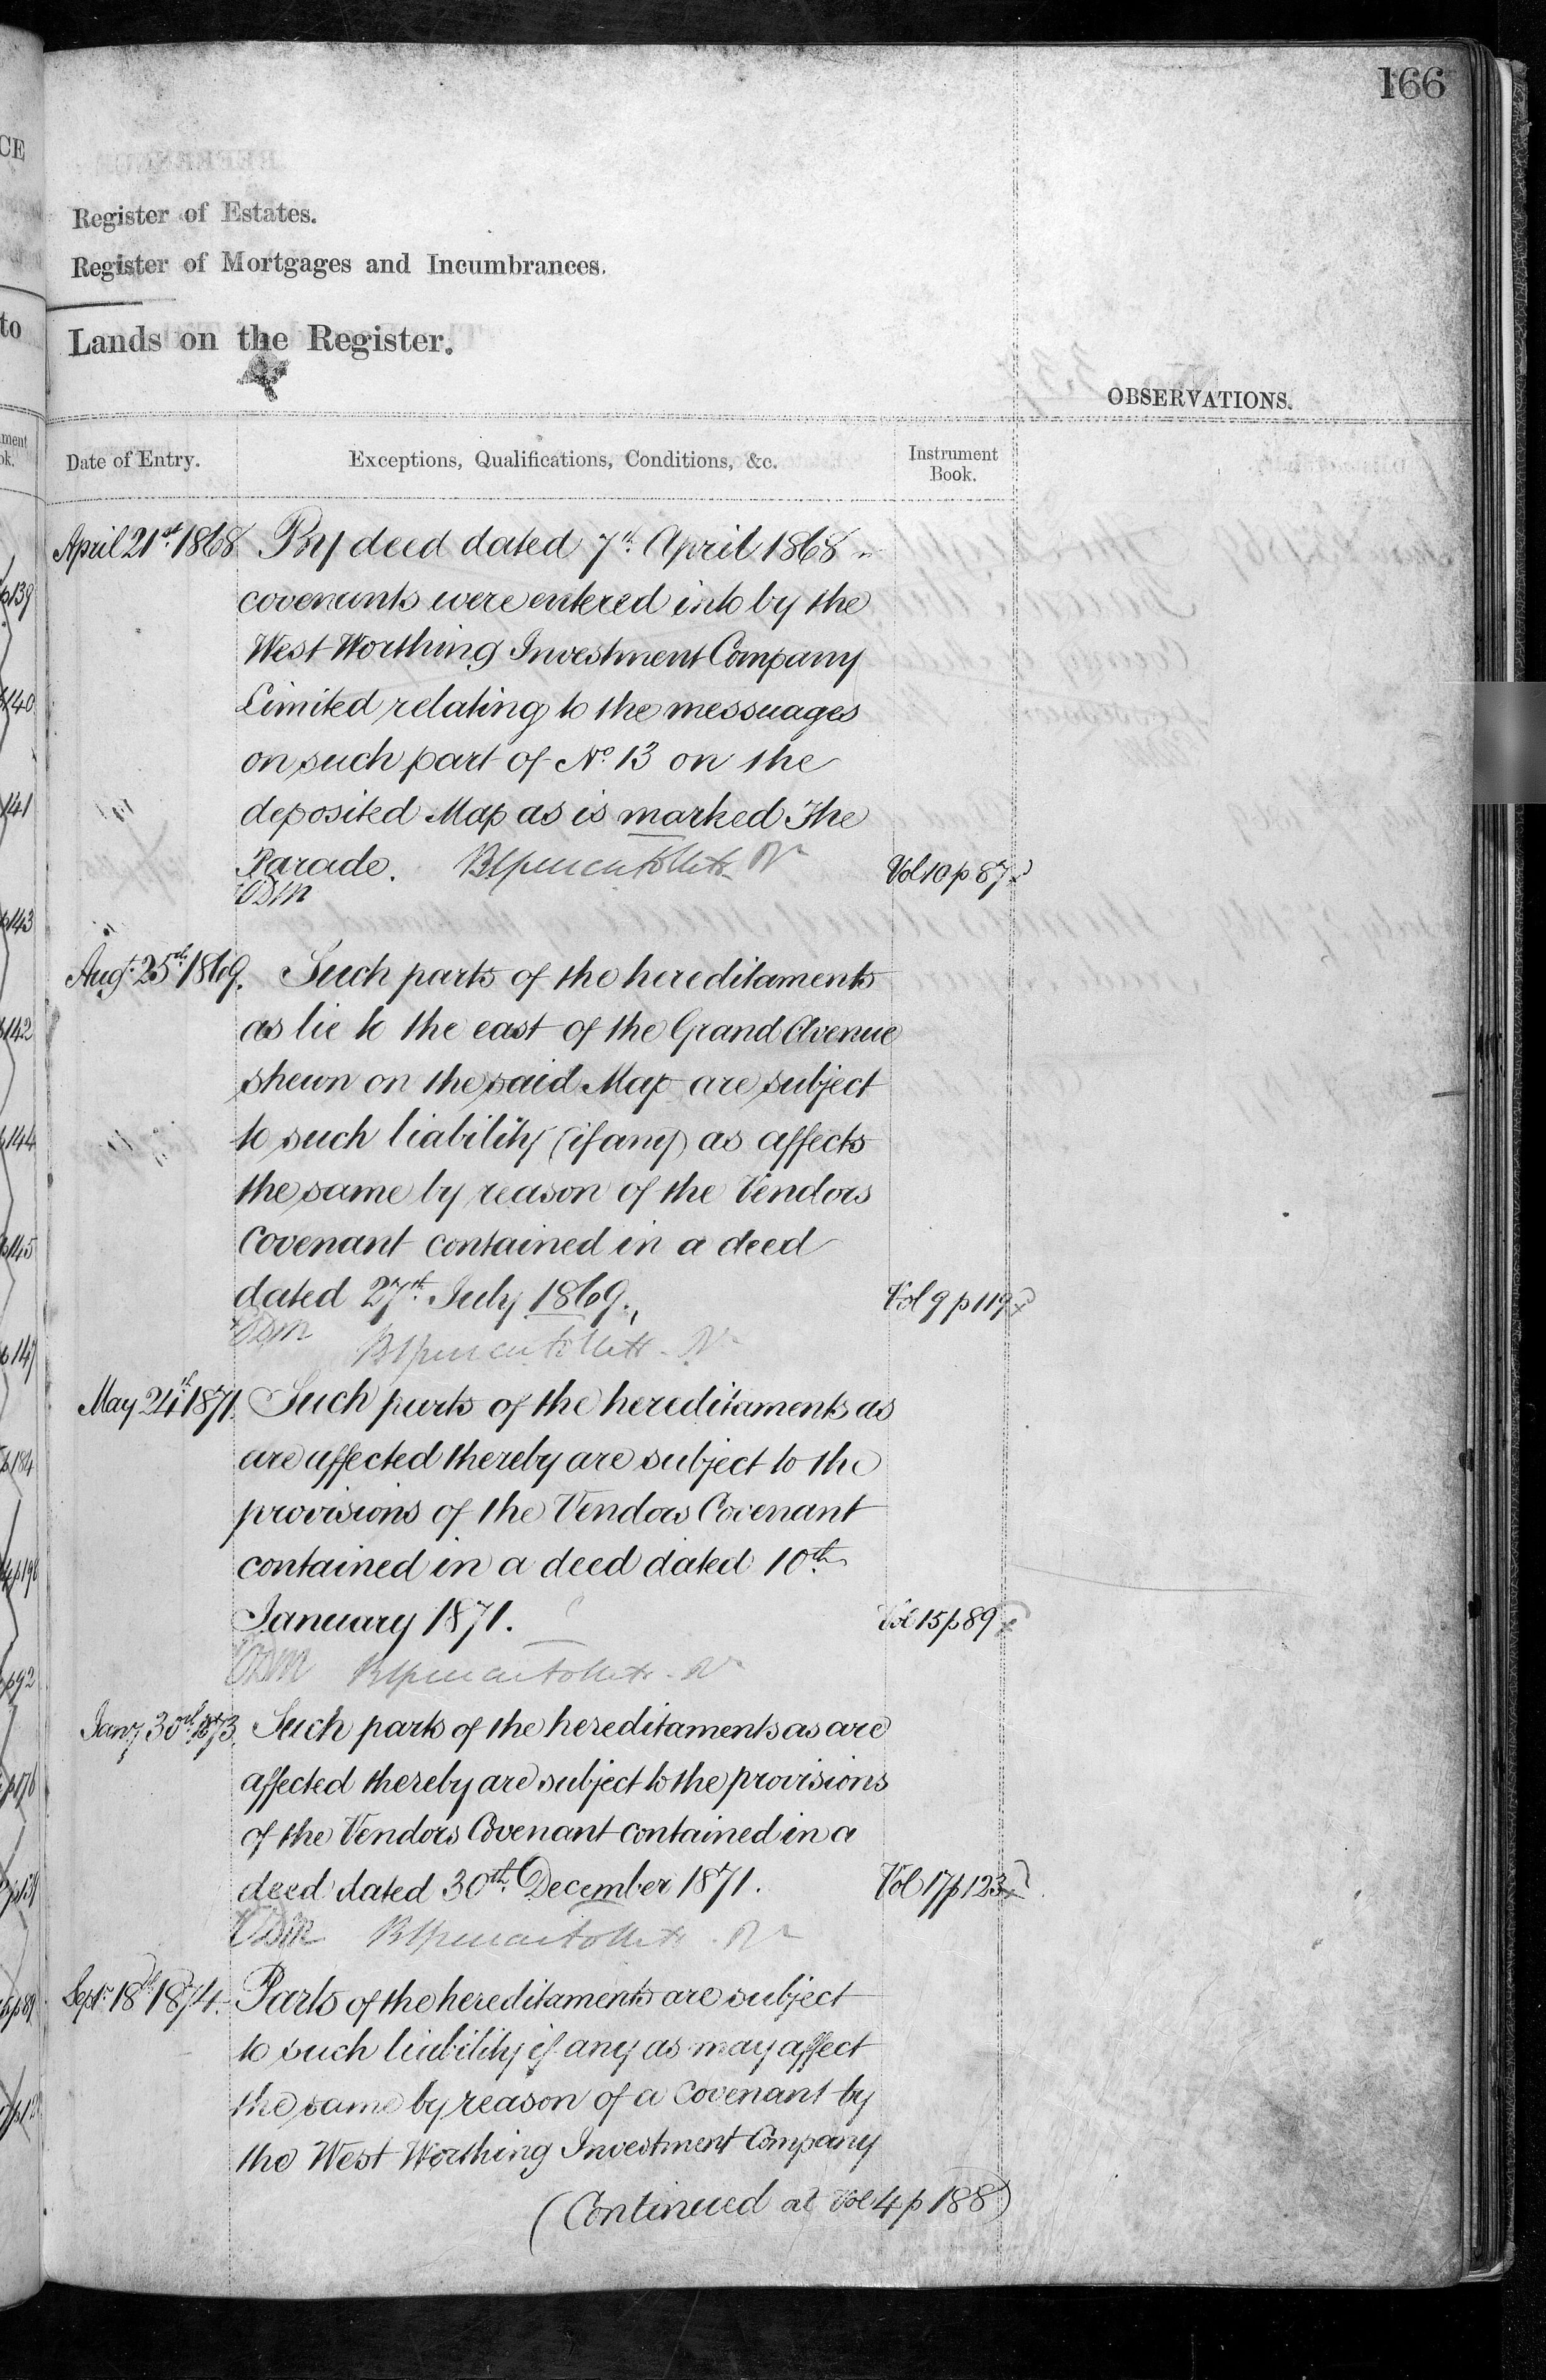 166
Register of Estates.
Register of Mortgages and Incumbrances.
Lands on the Register.
OBSERVATIONS.
Date of Entry.
Exceptions, Qualifications, Conditions, &c.
Instrument
Book.
April 21st 1868 By deed dated 7th April 1868
covenants were entered into by the
West Worthing Investment Company
Limited relating to the messuages
on such part of No 13 on the
deposited Map as is marked The
Parade. Vol 10 p 87
Augt. 25th 1869. Such parts of the hereditaments
as lie to the east of the Grand Avenue
shewn on the said Map are subject
to such liability (if any) as affects
the same by reason of the Vendors
Covenant contained in a deed
dated 27th July 1869. Vol 9 p 119
May 24th 1871. Such parts of the hereditaments as
are affected thereby are subject to the
provisions of the Vendors Covenant
contained in a deed dated 10th
January 1871. Vol 15 p 89
Jany 30th 1873. Such parts of the hereditaments as are
affected thereby are subject to the provisions
of the Vendors Covenant contained in a
deed dated 30th December 1871. Vol 17 p 123
Septr 18th 1874. Parts of the hereditaments are subject
to such liability if any as may affect
the same by reason of a Covenant by
the West Worthing Investment Company
(Continued at Vol 4 p 188)